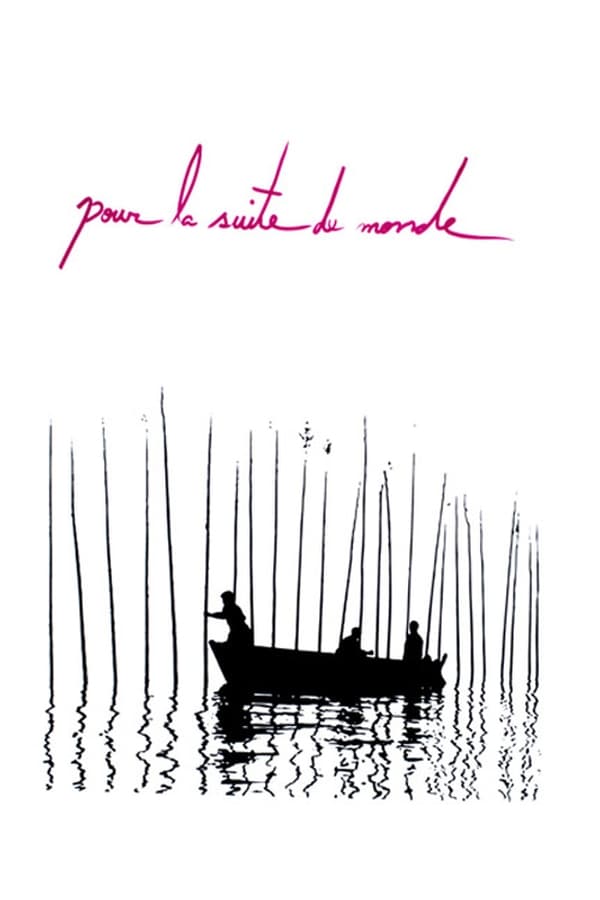 pour la suite du monde